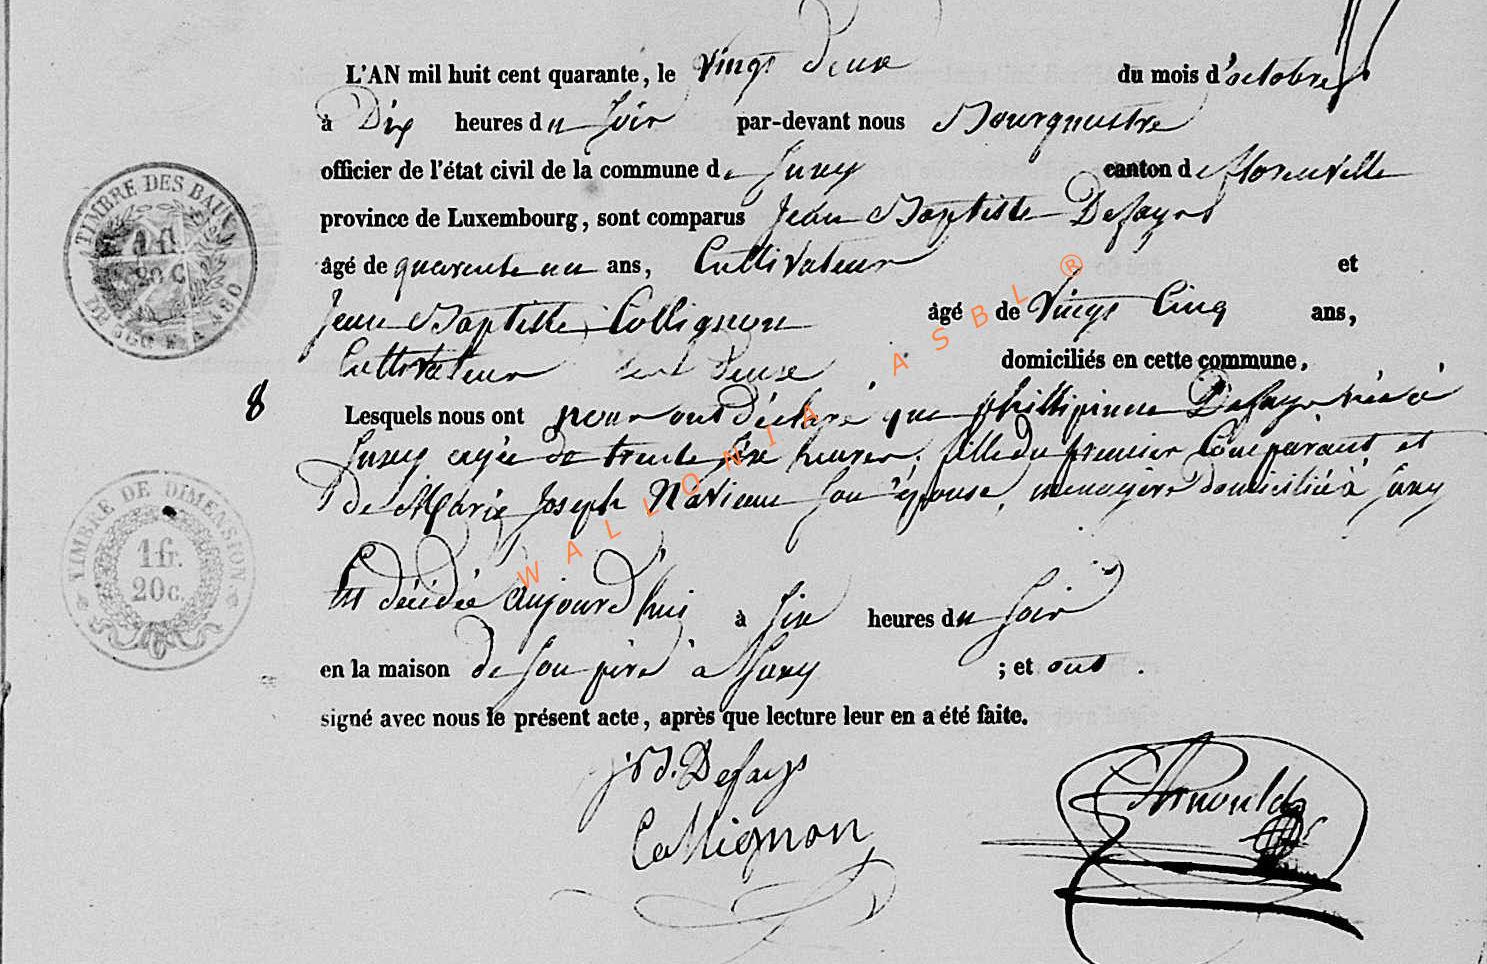 L'AN mil huit cent quarante, le vingt deux du mois d'octobre
à Dix heures du soir par-devant nous Bourgmestre
officier de l'état civil de la commune de Suxy canton de florenville
province de Luxembourg, sont comparus Jean Baptiste Defays
âgé de quarante un ans, Cultivateur et
Jean Baptiste Collignon âgé de vingt Cinq ans,
Cultivateur tout deux domiciliés en cette commune.
8 Lesquels nous ont nous ont déclaré que phillipinne Defays née à
Suxy agée de trente six heures, fille du premier Comparant et
de Marie Joseph Naviaux son épouse, menagère domiciliée à Suxy
Est décédée aujourd'hui à six heures du soir
en la maison de son père à Suxy ; et ont
signé avec nous le présent acte, après que lecture leur en a été faite.
jbd. Defays
Collignon
Arnould
TIMBRE DES BAUX
TIMBRE DE DIMENSION.
1 fr.
20c.
WALLONIA ASBL ®